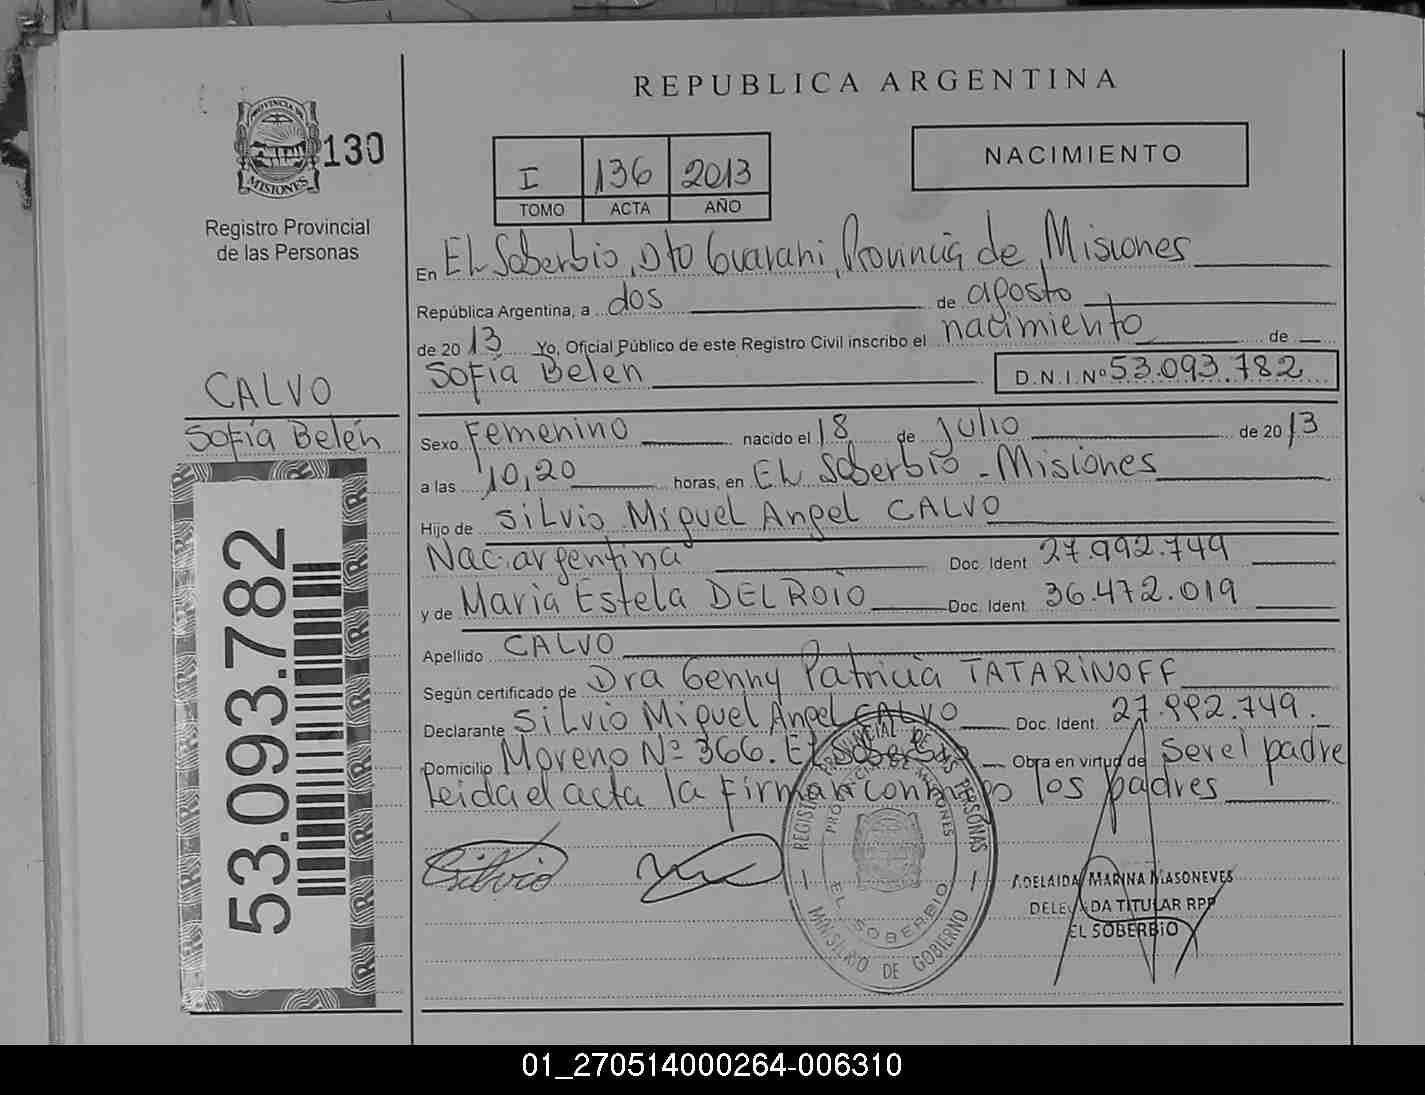 REPUBLICA ARGENTINA
PROVINCIA DE
MISIONES
130
Registro Provincial
de las Personas
I 136 2013
TOMO ACTA AÑO
NACIMIENTO
En EL Soberbio, Dto Guaraní, Provincia de Misiones
República Argentina, a dos de agosto
de 2013 Yo, Oficial Público de este Registro Civil inscribo el nacimiento de
Sofía Belén D.N.I.Nº 53.093.782
CALVO
Sofía Belén
Sexo Femenino nacido el 18 de Julio de 2013
a las 10,20 horas, en EL Soberbio - Misiones
Hijo de Silvio Miguel Angel CALVO
Nac. argentina Doc. Ident 27.992.749
y de María Estela DEL ROIO Doc. Ident 36.472.019
Apellido CALVO
Según certificado de Dra Genny Patricia TATARINOFF
Declarante Silvio Miguel Angel CALVO Doc. Ident. 27.992.749.
Domicilio Moreno Nº 366. El Soberbio Obra en virtud de Ser el padre
Leida el acta la firman conmigo los padres
53.093.782
Silvio
REGISTRO PROVINCIAL DE LAS PERSONAS
PROVINCIA DE MISIONES
EL SOBERBIO
MINISTERIO DE GOBIERNO
ADELAIDA MARINA MASONEVES
DELEGADA TITULAR RPP
EL SOBERBIO
01_270514000264-006310